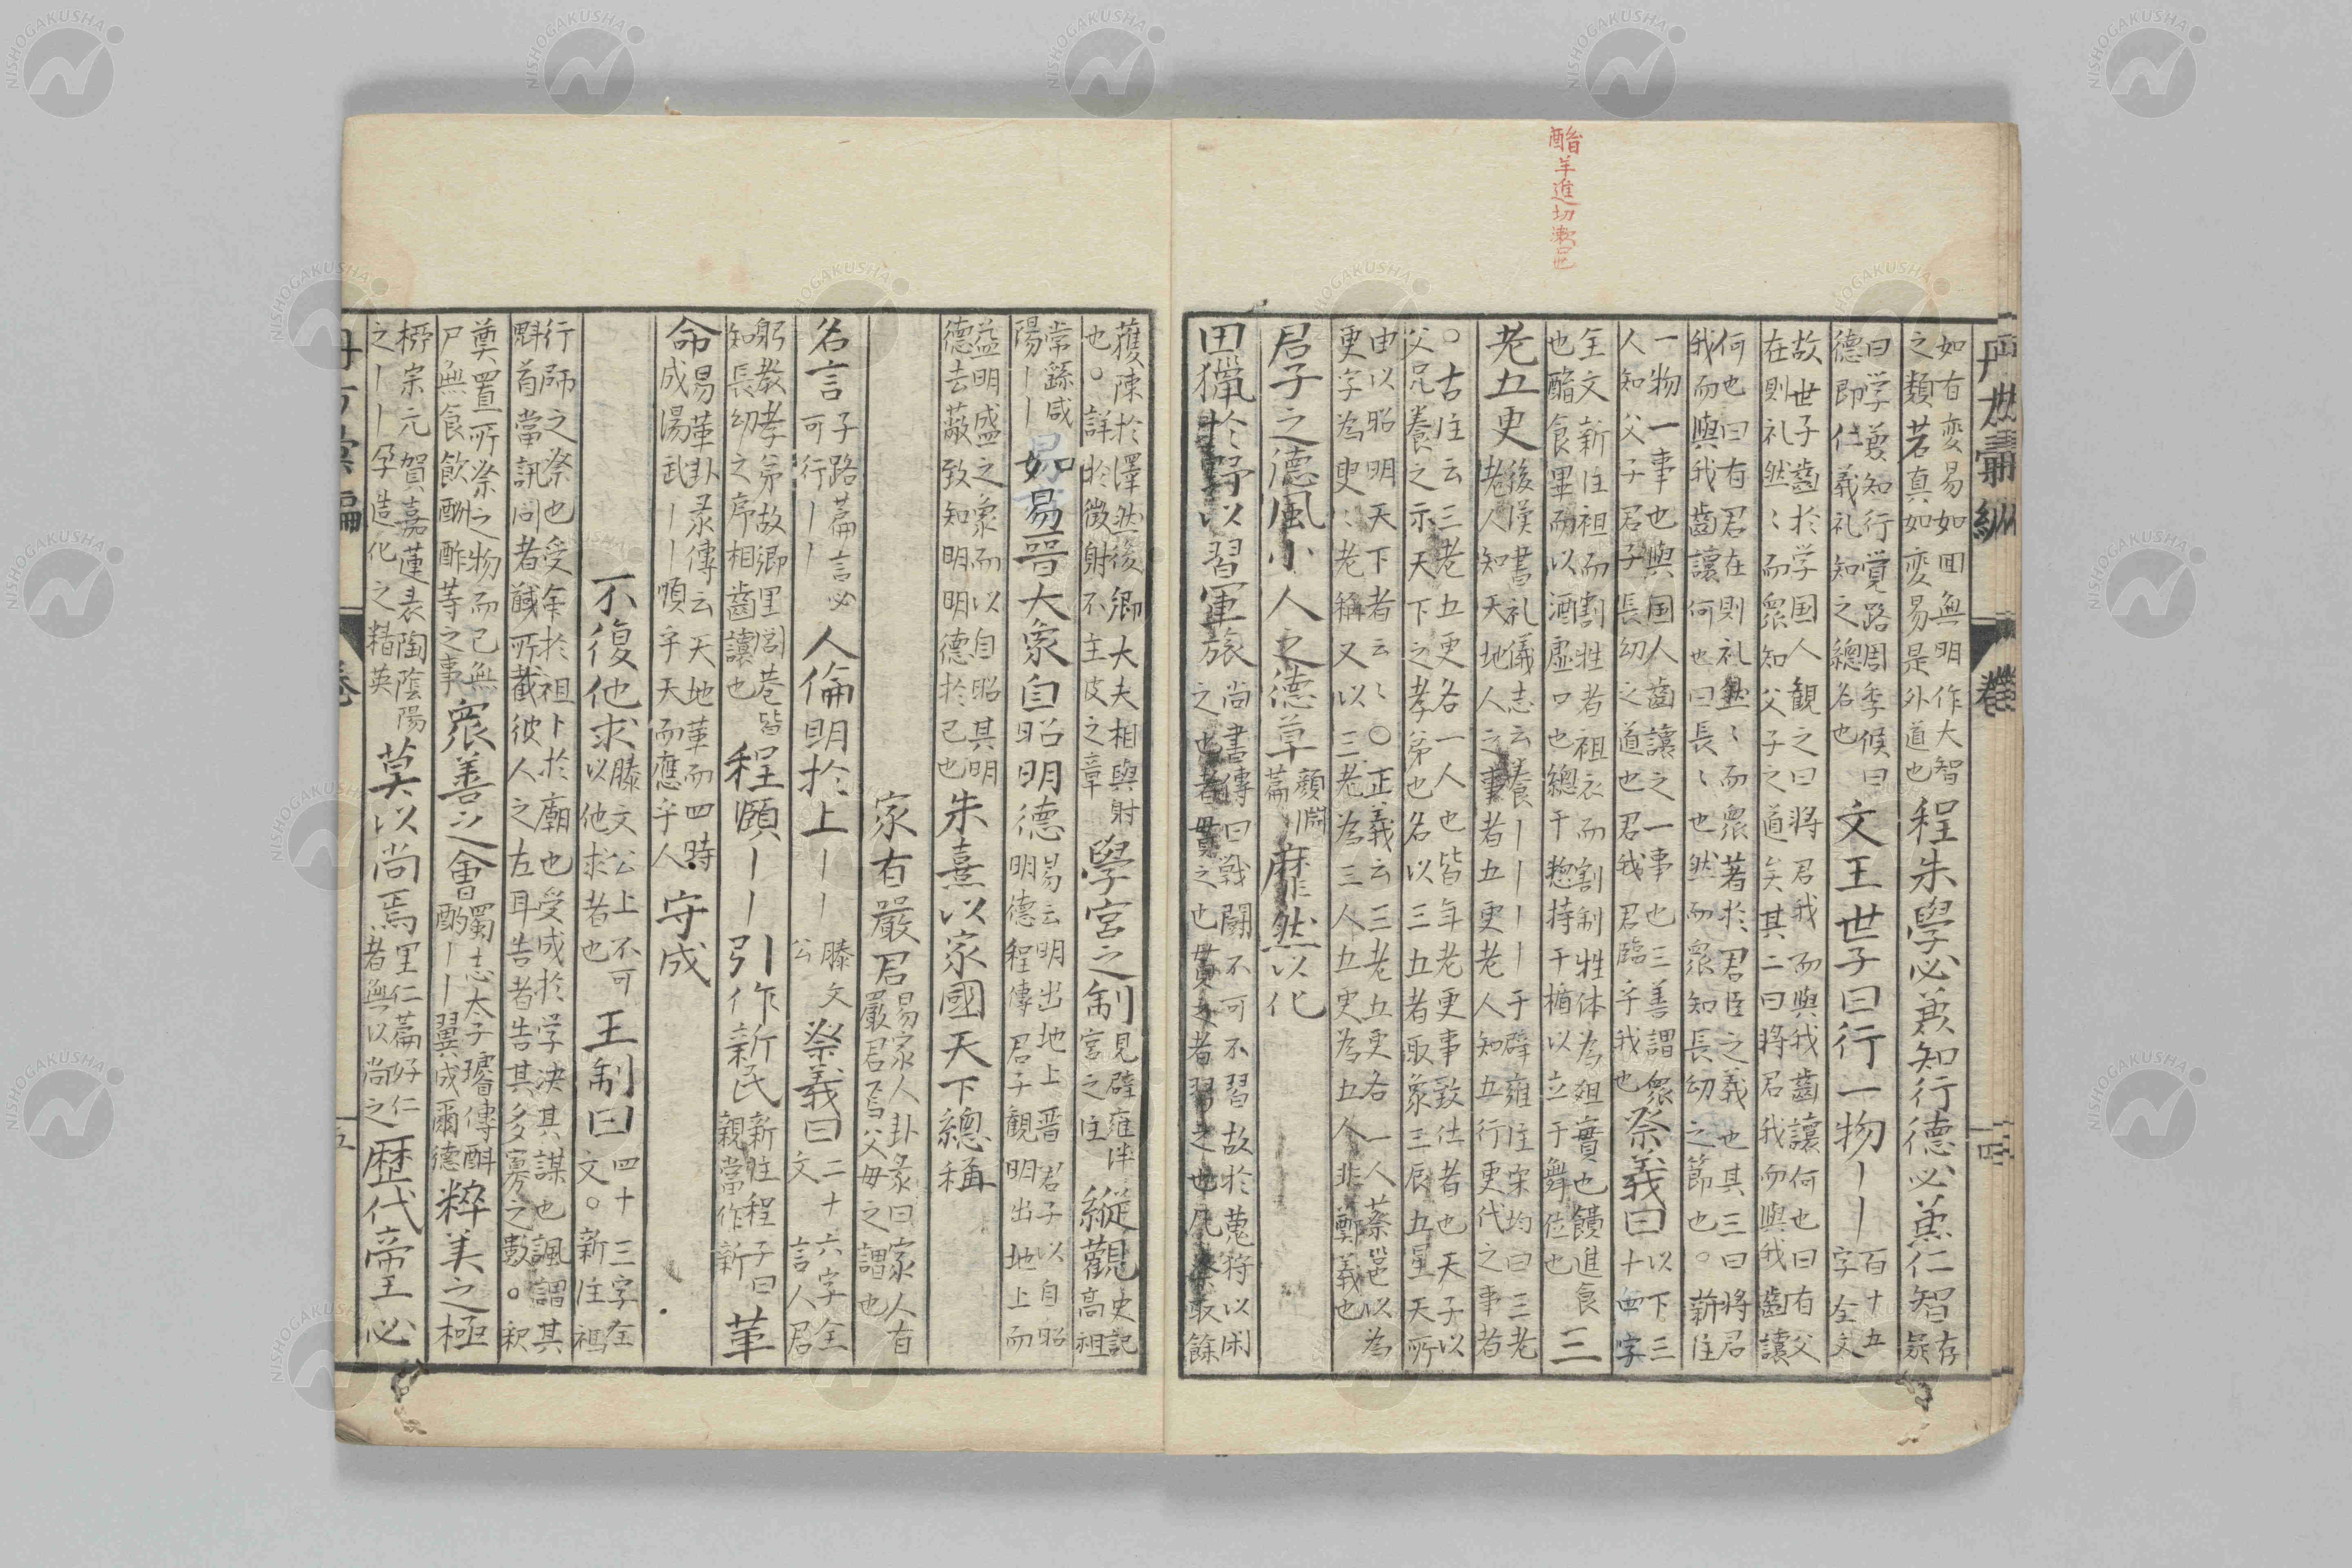 酯羊進切漱也
如有変易如回無明作大智
之類若真如変易是外道也
程朱學必兼知行德必兼仁智存
曰学兼知行覚路周季候曰
德即仁義礼知之總名也
文王世子曰行一物〡〡百十五
字全文
故世子齒於学国人観之曰将君我而與我齒讓何也曰有父
在則礼然〻而衆知父子之道矣其二曰将君我而與我齒讓
何也曰有君在則礼然〻而衆著於君臣之義也其三曰将君
我而與我齒讓何也曰長〻也然而衆知長幼之節也。新注
一物一事也與国人齒讓之一事也三善謂衆
人知父子君子長幼之道也君我君臨乎我也
祭義曰以下三
十四字
全文新注袒而割牲者袒衣而割制牲体為俎實也饋進食
也酯食畢而以酒虚口也總干揔持干楯以立于舞位也
三
老五更
後漢書礼儀志云養〡〡〡〡于辟雍注宋均曰三老
老人知天地人之事者五更老人知五行更代之事者
。古注云三老五更各一人也皆年老更事致仕者也天子以
父兄養之示天下之孝弟也名以三五者取象三辰五星天所
由以昭明天下者云〻〇正義云三老五更各一人蔡邕以為
更字為叟〻老稱又以三老為三人五叟為五人非鄭義也
君子之德風小人之德草
顏淵
篇
靡然以化
田獵於野以習軍旅
尚書傳曰戦闘不可不習故於蒐狩以閑
之也者貫之也貫之者習之也凡祭取餘
獲陳於澤然後卿大夫相與射
也。詳於徴射不主皮之章
學宮之制
見辟雍泮
宮之注
縱觀
史記
高祖
常繇咸
陽〡〡
如易晉大象自昭明德
易云明出地上晋君子以自昭
明德程傳君子観明出地上而
益明盛之象而以自昭其明
德去蔽致知明明德於己也
朱熹以家國天下總稱
家有嚴君
易家人卦彖曰家人有
嚴君焉父母之謂也
名言
子路篇言必
可行〡〡
人倫明於上〡〡〡
滕文
公
祭義曰
二十六字全
文
言人君
躬教孝弟故郷里閭巷皆
知長幼之序相齒讓也
程頤〡〡〡引作新民
新注程子曰
親當作新
革
命
易革卦彖傳云天地革而四時
成湯武〡〡順乎天而應乎人
守成
不復他求
滕文公上不可
以他求者也
王制曰
四十三字全
文。新注禡
行師之祭也受命於祖卜於廟也受成於学决其謀也訊謂其
魁首當訊問者馘所截彼人之左耳告者告其多寡之數。釈
奠置所祭之物而已無
尸無食飲酬酢等之事
衆善之會
蜀志太子璿傳酣
酌〡〡翼成爾德
粹美之極
栁宗元賀嘉蓮表陶蔭陽
之〡〡孕造化之精英
莫以尚焉
里仁篇好仁
者無以尚之
歴代帝王必